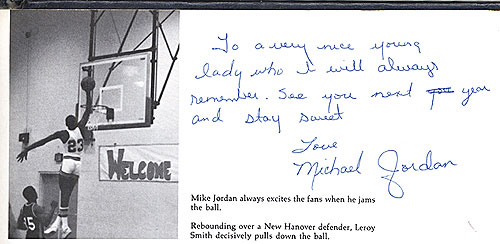 To a very nice young
lady who I will always
remember. See you next year
and stay sweet
Love
Michael Jordan
23
WELCOME
15
Mike Jordan always excites the fans when he jams
the ball.
Rebounding over a New Hanover defender, Leroy
Smith decisively pulls down the ball.